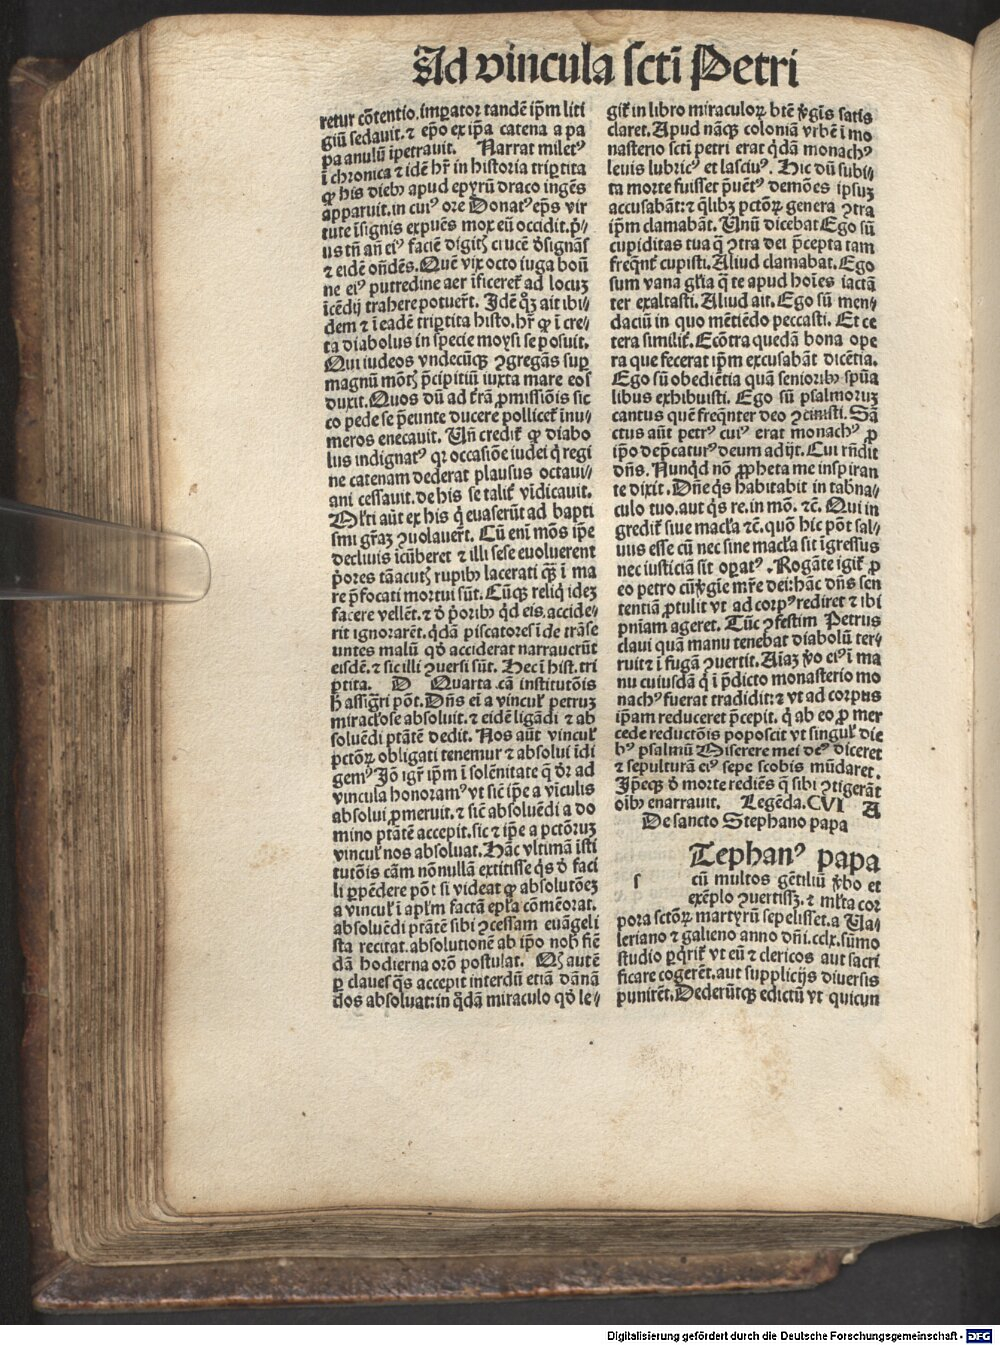 Ad vincula scti Petri
retur cōtentio. impator tandē ip̄m liti
giū sedavit. ⁊ ep̄o ex ip̄a catena a pa
pa anulū īpetravit. Narrat miletꝰ
ī chronica ⁊ idē hr̄ in historia trip̄tita
ꝙ his dieb⁊ apud epyrū draco ingēs
apparuit. in cuiꝰ ore Donatꝰ ep̄s vir
tute īsignis expuēs mox eū occidit. p̄⸗
us tn̄ an̄ eiꝰ faciē digit̄ crucē ꝺsignās
⁊ eidē on̄dēs. Quē vix octo iuga boū
ne eiꝰ putredine aer īficeret̄ ad locuꝫ
īcēdij trahere potuer̄t. Idē qꝫ ait ibi⸗
dem ⁊ ī eadē trip̄tita histo. hr̄ ꝙ ī cre⸗
ta diabolus in specie moysi se posuit.
Qui iudeos vndecūqꝫ ꝯgregās sup̄
magnū mōtꝫ p̄cipitiū iuxta mare eos
duxit. Quos dū ad t̄rā ꝓmissiōis sic
co pede se p̄eunte ducere pollicet̄ īnu⸗
meros enecauit. Vn̄ credit̄ ꝙ diabo
lus indignatꝰ qꝛ occasiōe iudei q̄ regi
ne catenam dederat plausus octaui⸗
ani cessauit. de his se talit̄ vīdicauit.
Ml̄ti aūt ex his q̄ euaserūt ad bapti
smi gr̄aꝫ ꝯuolauer̄t. Cū eni mōs ip̄e
decliuis īcūberet ⁊ illi sese euoluerent
p̄ores tā acutꝫ rupib⁊ lacerati qꝫ ī ma
re p̄focati mortui sūt. Cūqꝫ reliq̄ ideꝫ
facere vellēt. ⁊ ꝺ p̄orib⁊ qd eis accide⸗
rit ignorarēt. qdā piscatores īde trāse
untes malū qꝺ acciderat narrauerūt
eisdē. ⁊ sic illi ꝯuersi sūt. Hec ī hist. tri
p̄tita. D Quarta cā institutōis
h̄ assigr̄i pōt. Dn̄s ei a vincul̄ petruꝫ
miracl̄ose absoluit. ⁊ eidē ligādi ⁊ ab
soluēdi ptātē dedit. Nos aūt vincul̄
pctōꝝ obligati tenemur ⁊ absolui īdi
gemꝰ Iō igr̄ ip̄m ī solēnitate q̄ ꝺr ad
vincula honoramꝰ vt sic̄ ip̄e a vīculis
absolui ꝓmeruit. ⁊ sic̄ absoluēdi a do
mino ptātē accepit. sic ⁊ ip̄e a pctōruꝫ
vincul̄ nos absoluat. Hāc vltimā īsti
tutōis cām nōnullā extitisse qs ꝺ faci
li ꝑpēdere pōt si videat ꝙ absolutōeꝫ
a vincul̄ ī ap̄lm factā ep̄la cōmēorat.
absoluēdi ptātē sibi ꝯcessam euāgeli
sta recitat. absolutionē ab ip̄o nob̄ fiē
dā hodierna orō postulat. Qꝫ autē
ꝑ claues qs accepit interdū etiā dānā
dos absoluat: in qdā miraculo qꝺ le⸗
git̄ in libro miraculoꝝ btē v̄gis satis
claret. Apud nāqꝫ coloniā vrbē ī mo
nasterio scti petri erat qdā monachꝰ
leuis lubricꝰ et lasciuꝰ. Hic dū subi⸗
ta morte fuisset p̄uētꝰ demōes ipsuꝫ
accusabāt: ⁊ qlibꝫ pctōꝝ genera ꝯtra
ip̄m clamabāt. Unū dicebat Ego sū
cupiditas tua q̄ ꝯtra dei p̄cepta tam
freqn̄t̄ cupisti. Aliud clamabat. Ego
sum vana gl̄ia q̄ te apud hoīes iactā
ter exaltasti. Aliud ait. Ego sū men⸗
daciū in quo mētiēdo peccasti. Et ce
tera similit̄. Ecōtra quedā bona ope
ra que fecerat ip̄m excusabāt dicētia.
Ego sū obediētia quā seniorib⁊ sp̄ua
libus exhibuisti. Ego sū psalmoruꝫ
cantus quē freqn̄ter deo ꝯcinisti. Sā
ctus aūt petrꝰ cuiꝰ erat monachꝰ ꝓ
ip̄o dep̄caturꝰ deum adijt. Cui rn̄dit
dn̄s. Nunqd nō ꝓpheta me inspiran
te dixit. Dn̄e qs habitabit in tabna⸗
culo tuo. aut qs re. in mō. ⁊c̄. Qui in
gredit̄ siue macl̄a ⁊c̄. quō hic pōt sal⸗
uus esse cū nec sine macl̄a sit īgressus
nec iusticiā sit op̄atꝰ. Rogāte igit̄ ꝓ
eo petro cū v̄gīe mr̄e dei: hāc dn̄s sen
tentiā ꝓtulit vt ad corpꝰ rediret ⁊ ibi
pn̄iam ageret. Tūc ꝯfestim Petrus
claui quā manu tenebat diabolū ter⸗
ruit ⁊ ī fugā ꝯuertit. Aīaꝫ v̄o eiꝰ ī ma
nu cuiusdā q̄ ī p̄dicto monasterio mo
nachꝰ fuerat tradidit: ⁊ vt ad corpus
ip̄am reduceret p̄cepit. q̄ ab eo ꝓ mer
cede reductōis poposcit vt singul̄ die
bꝰ psalmū Miserere mei deꝰ diceret
⁊ sepulturā eiꝰ sepe scobis mūdaret.
Ip̄eqꝫ ꝺ morte rediēs q̄ sibi ꝯtigerāt
oīb⁊ enarrauit. Legēda. CVI A
De sancto Stephano papa
Tephanꝰ papa
s cū multos gētiliū v̄bo et
exēplo ꝯuertissꝫ. ⁊ ml̄ta cor
pora sctōꝝ martyrū sepelisset. a Va⸗
leriano ⁊ galieno anno dn̄i. cclx. sūmo
studio ꝑqrit̄ vt eū ⁊ clericos aut sacri
ficare cogerēt. aut supplicijs diuersis
punirēt. Dederūtqꝫ edictū vt quicun
Digitalisierung gefördert durch die Deutsche Forschungsgemeinschaft - DFG